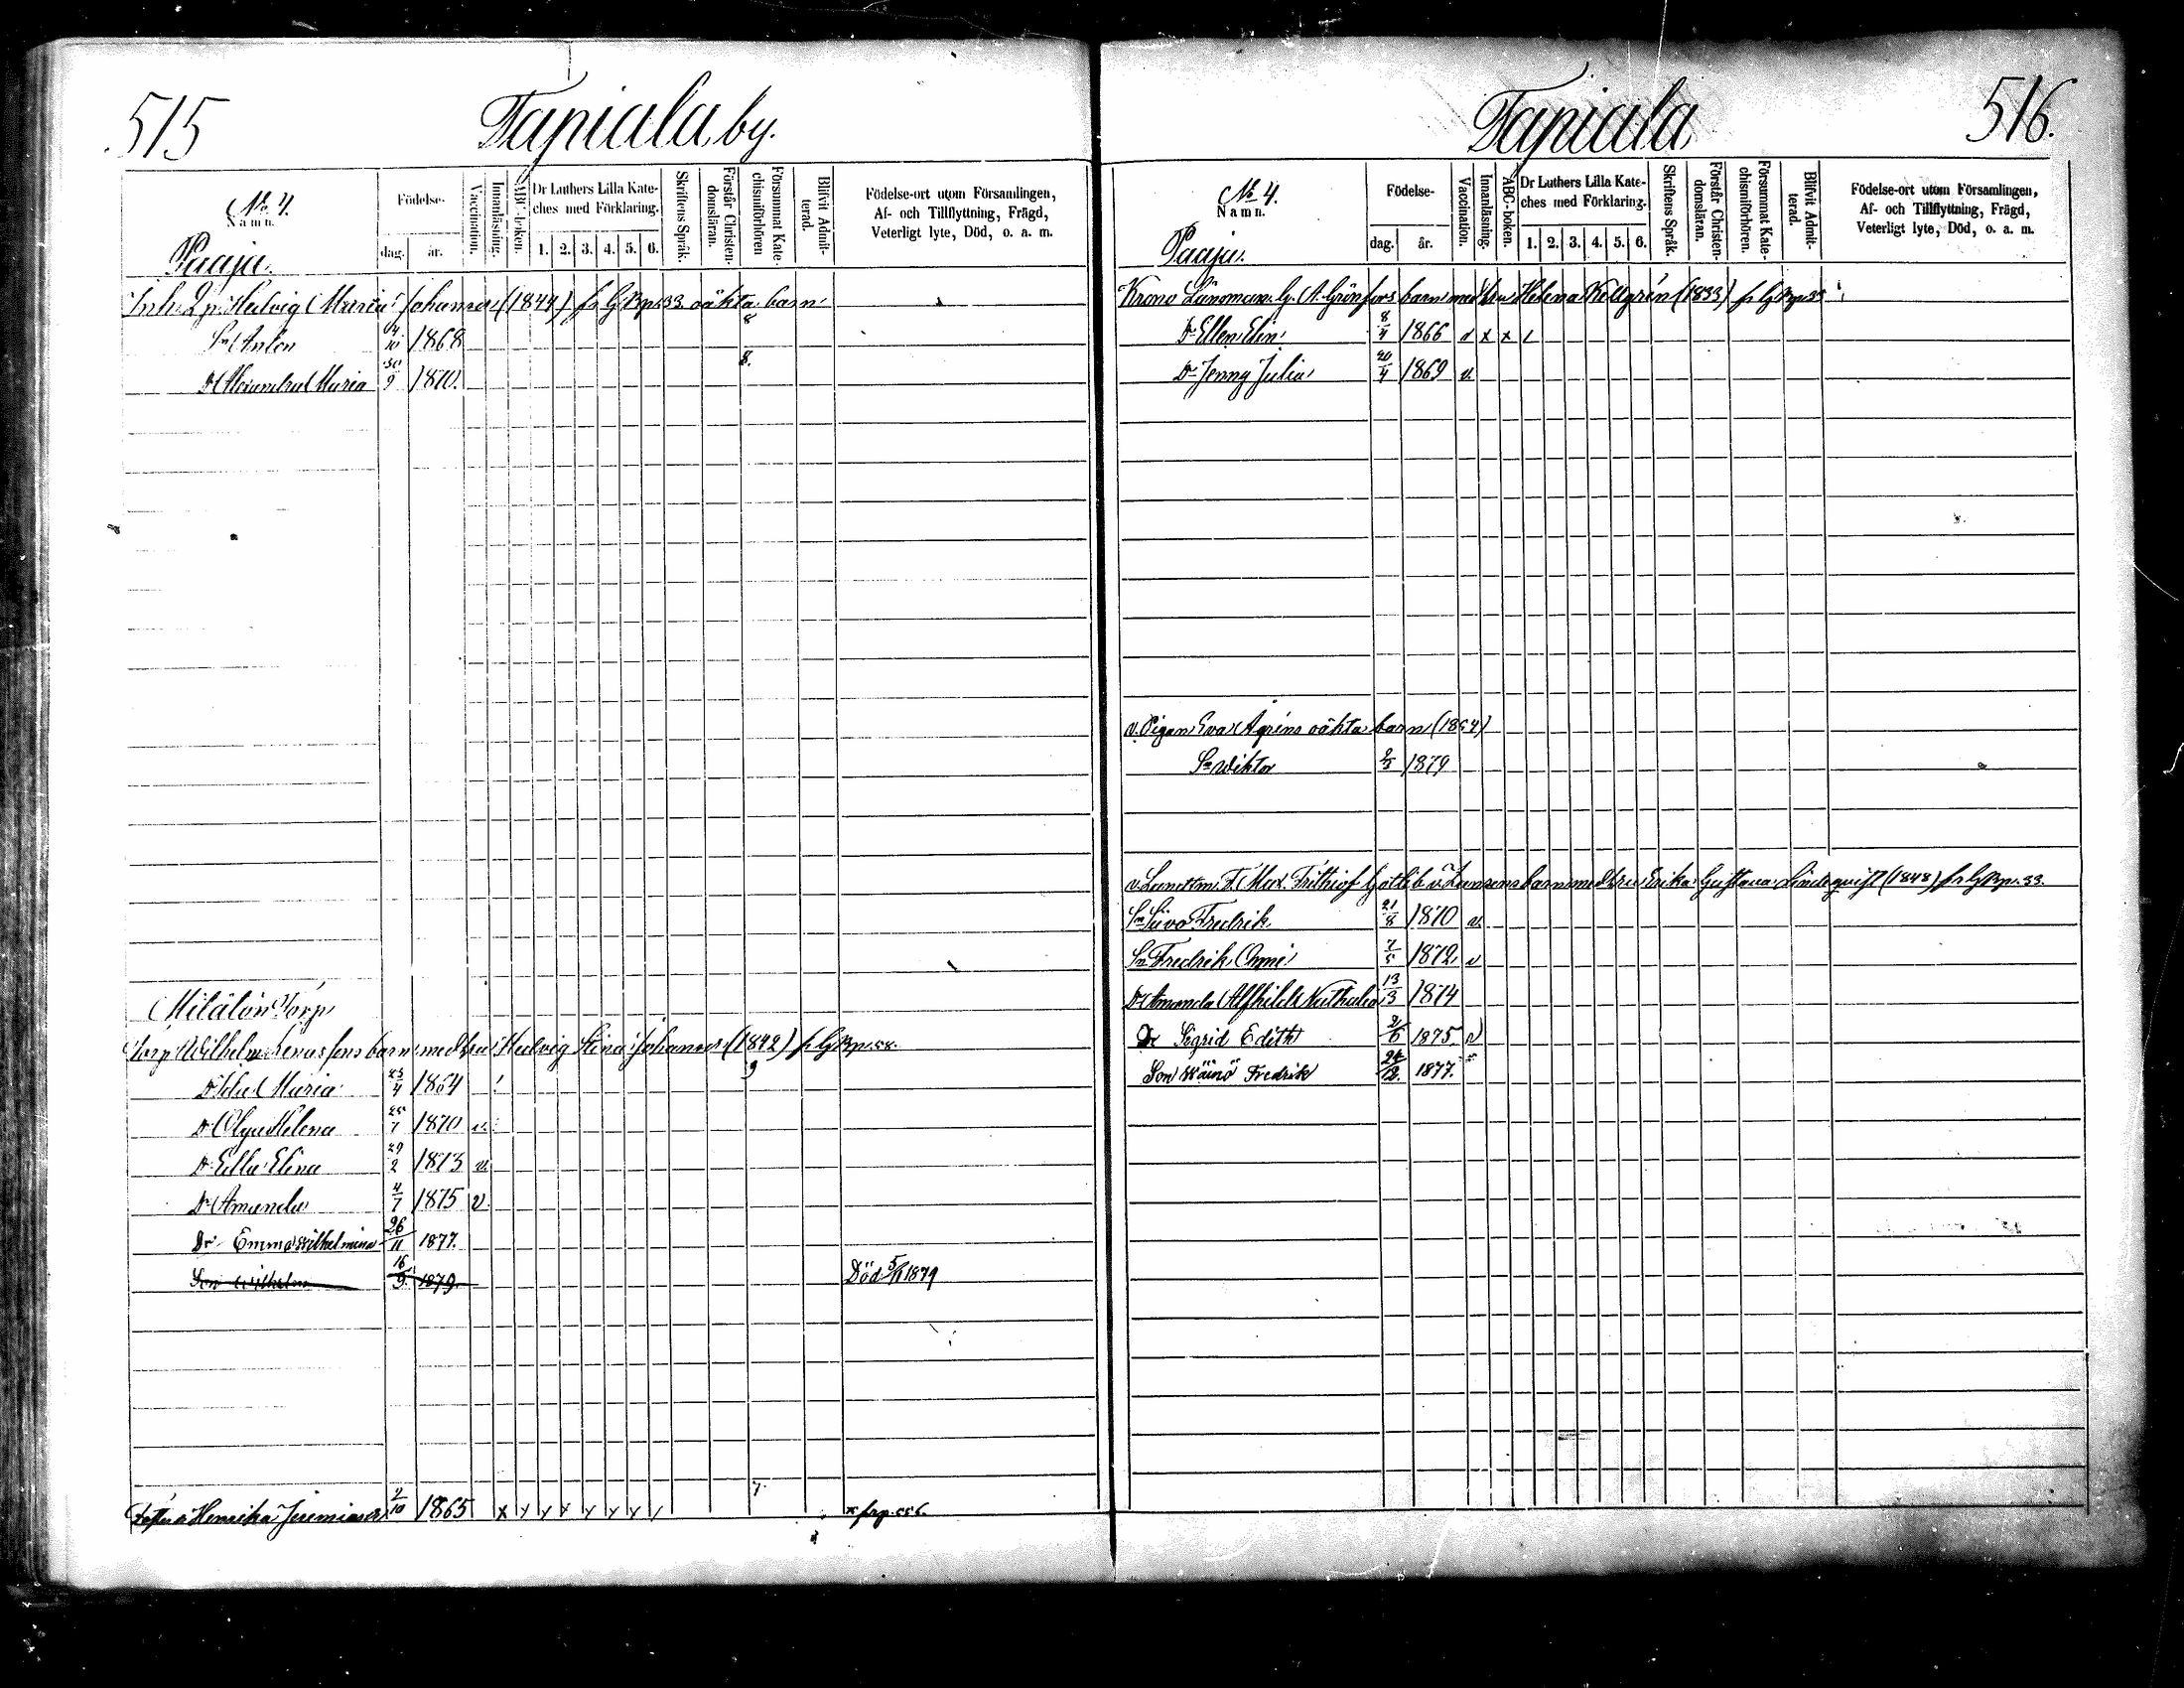 515
Tapiala by.
No. 4.
Namn.
Paaju.
Födelse-
dag.
år.
Vaccination.
Innanläsning.
ABC-boken.
Dr Luthers Lilla Kate-
ches med Förklaring.
1. 2. 3. 4. 5. 6.
Skriftens Språk.
Förstår Christen-
domsläran.
Försummat Kate-
chismiförhören
Blifvit Admit-
terad.
Födelse-ort utom Församlingen,
Af- och Tillflyttning, Frägd,
Veterligt lyte, Död, o. a. m.
Inh. Hedvig Maria Johansr (1844) fr G. Bp. 33 oäkta barn
8
Sn Anton 4/10 1868
8.
Dr Alexandra Maria 30/9 1870.
Mitälön Torp
Torp. Wilhelm barn med hu Hedvig Stina Johansr (1842) fr G. Bp.
9
Dr Ida Maria 23/4 1864
Dr Olga Helena 25/7 1870 v.
Dr Ella Elina 29/2 1873 v.
Dr Amanda 4/7 1875 v.
Dr Emma Wilhelmina 26/11 1877.
Son Wilhelm 16/9. 1879. Död 5/11 1879
7.
Henrika Jeremiasdr 2/10 1865 x
516.
Tapiala
No. 4.
Namn.
Paaju.
Födelse-
dag.
år.
Vaccination.
Innanläsning.
ABC-boken.
Dr Luthers Lilla Kate-
ches med Förklaring.
1. 2. 3. 4. 5. 6.
Skriftens Språk.
Förstår Christen-
domsläran.
Försummat Kate-
chismiförhören.
Blifvit Admit-
terad.
Födelse-ort utom Församlingen,
Af- och Tillflyttning, Frägd,
Veterligt lyte, Död, o. a. m.
Krono Länsman G. A. Grönfors barn med hu Helena Kellgrén (1833) fr G. Bp. 33
Dr Ellen Elin 8/4 1866 v x x 1
Dr Jenny Julia 20/4 1869 v.
v. Pigan Eva Agréns oäkta barn (1854)
Sn Wiktor 2/5 1879
v. Landtm. F. Mux. Frithiof Gotlib barn med hu Erika Gustava Lindqvist (1848) fr G. Bp. 33.
Sn Fredrik 21/8 1870 v.
Sn Fredrik Onni 7/5 1872. v
Dr Amanda Alfhild Nathalia 13/3 1874
Dr Sigrid Edith 2/6 1875 v
Son Wäinö Fredrik 24/12. 1877.